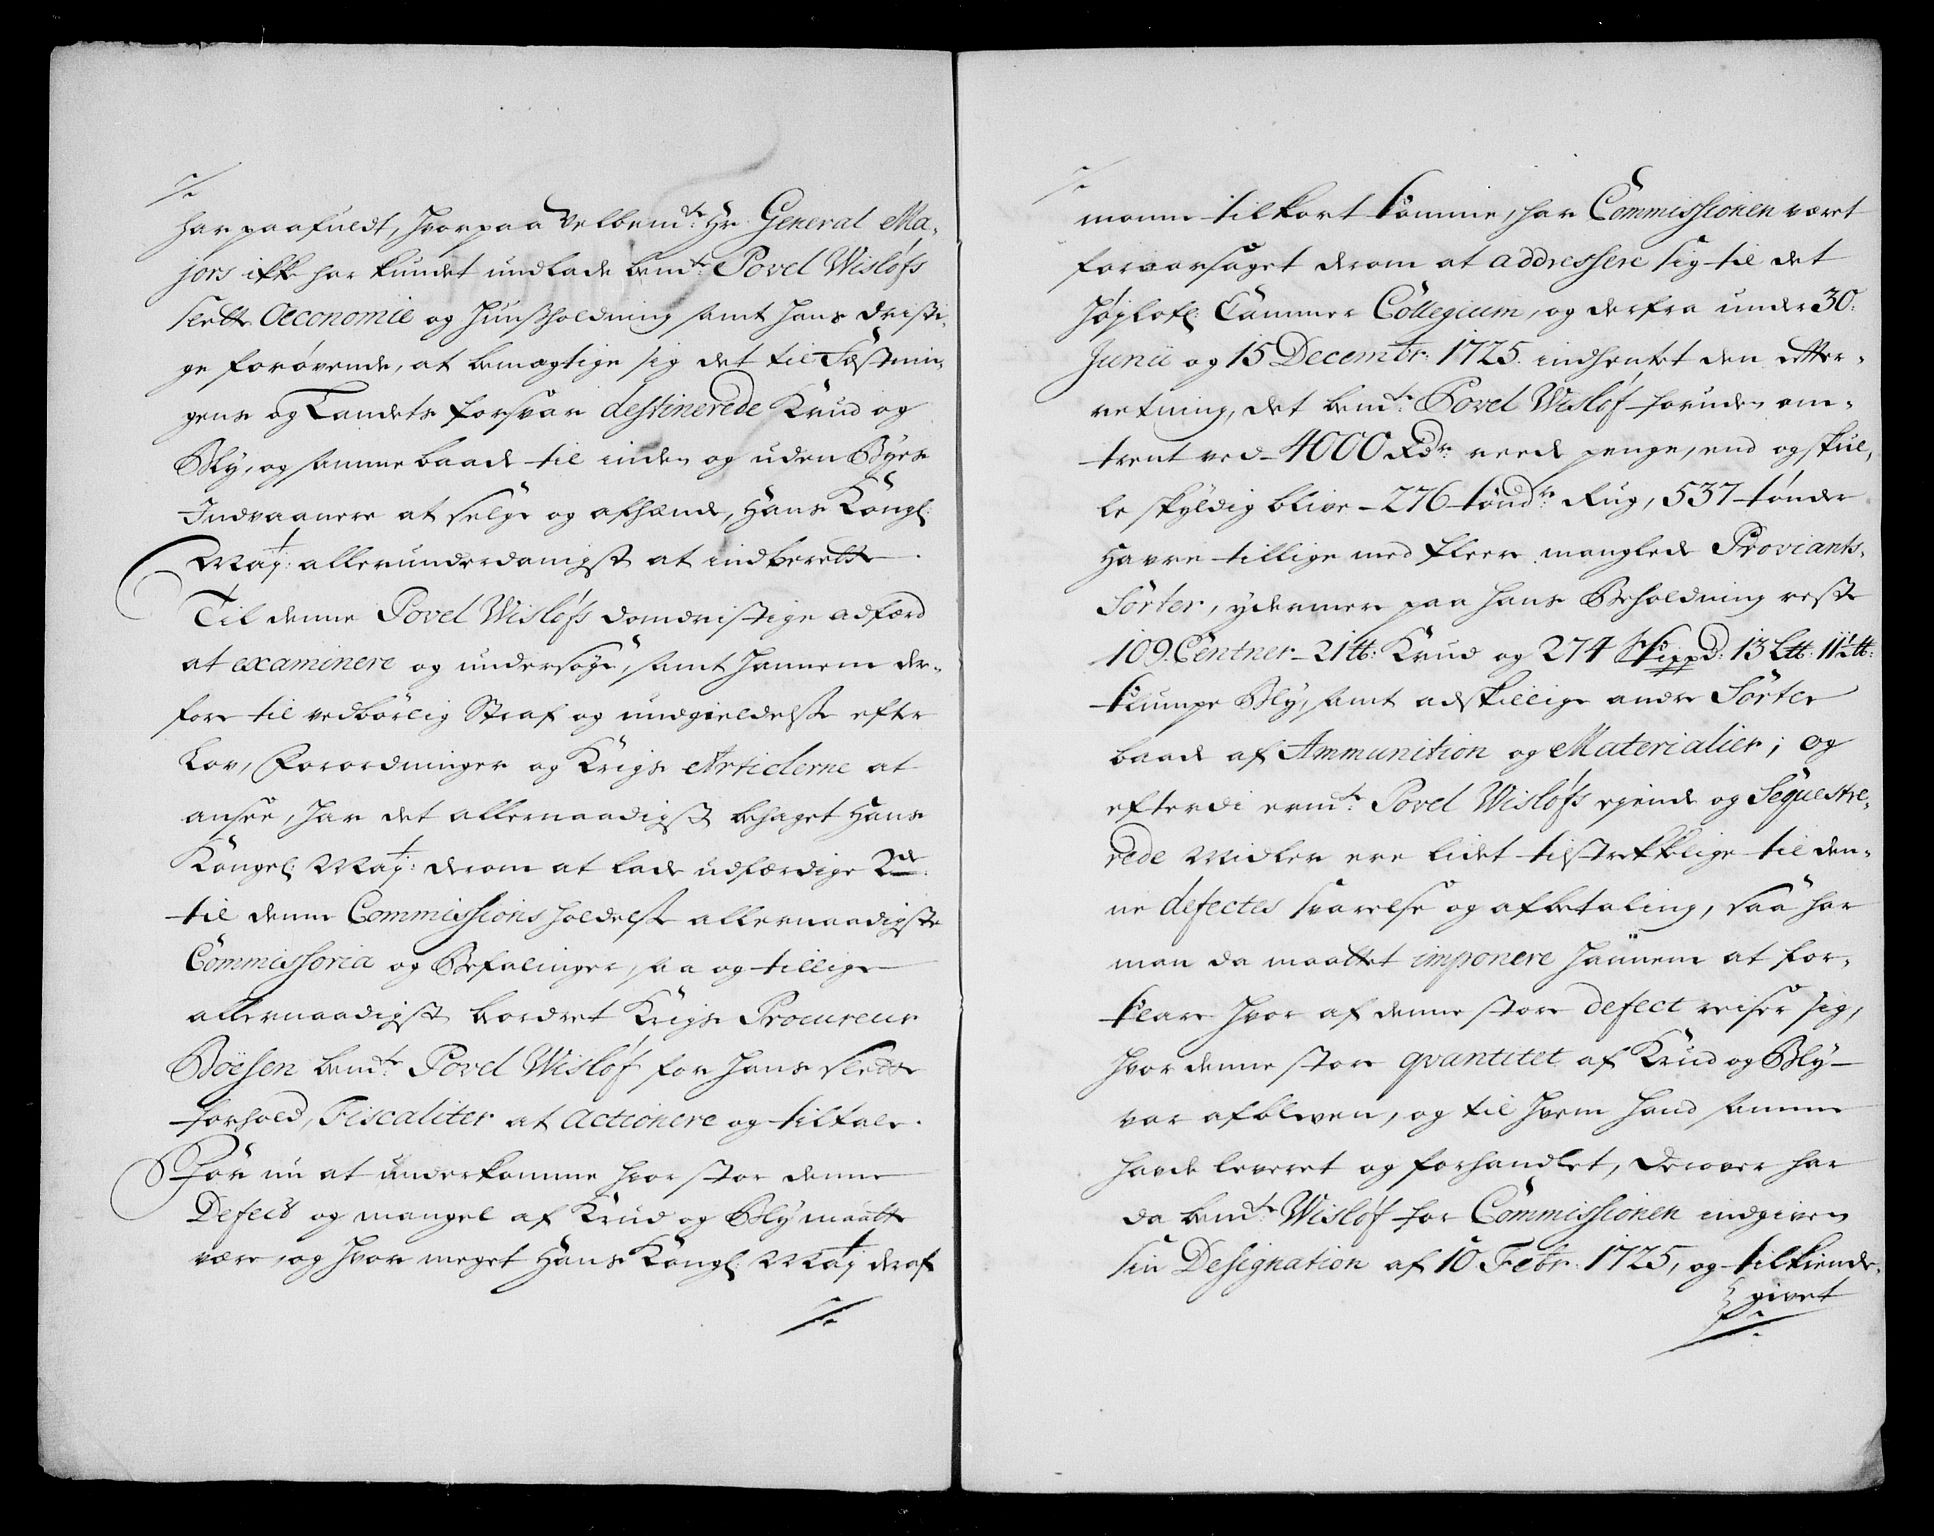 har paafuldt, hvorpaa Velbemte: Hr General Ma-
jors ikke har kundet undlade bemte: Povel Wisløfs
slette Oeconomie og Huusholdning samt hans dristi-
ge forøvende, at bemægtige sig det til Fæstnin-
gens og Landets forsvar destinerede Krud og
Bly, og samme baade til inden og uden Byes
Indvaanere at selge og afhænde, Hans Kongl:
Mayt: allerunderdanigst at indberette
Til denne Povel Wisløfs domdristige adfærd
at examinere og undersøge, samt hannem der-
fore til vedbørlig Straf og undgieldelse efter
Lov, Forordninger og Krigs Articlerne at
ansee, har det allernaadigst behaget Hans
Kongel: Mayt: derom at lade udfærdige 2de
til denne Commissions holdelse allernaadigste
Commissoria og Befalinger, saa og tillige
allernaadigst beordret Krigs Procureur
Boësen bemte: Povel Wisløf for hans slette
forhold, Fiscaliter at Actionere og tiltale.
For nu at underkomme hvor stor denne
Defect og mangel af Krud og Bly maatte
være, og hvor meget Hans Kongl: Mayt deraf
monne tilkort komme, har Commissionen været
foraarsaget derom at addressere sig til det
Høylofl: Cammer Collegium, og derfra under 30:
Junii og 15 Decembr: 1725. indhentet den etter-
retning, det bemte: Povel Wisløf foruden om-
trent ved 4000 Rdr: reede penge, end og skul-
le skyldig blive - 276 tøndr: Rug, 537 tønder
Havre tillige med fleere manglede Proviants-
Sorter, ydermere paa hans Beholdning reste
109. Centner - 21 ℔: Krud og 274 Skippd: 13 L℔: 11½ ℔:
klumpe Bly, samt adskillige andre Sorter
baade af Ammunition og Materialier; og
efterdi ermte: Povel Wisløfs egende og Seqvestre-
rede Midler ere lidet tilstrekkelige til den-
ne defectes svarelse og afbetaling, saa har
man da maattet imponere hannem at for-
klare hvor af denne store defect reiser sig,
hvor denne store qvantitet af Krud og Bly
var afbleven, og til hvem hand samme
hafde leveret og forhandlet, derover har
da bemte: Wisløf for Commissionen indgiven
sin Designation af 10 Febr: 1725, og tilkiende-
givet